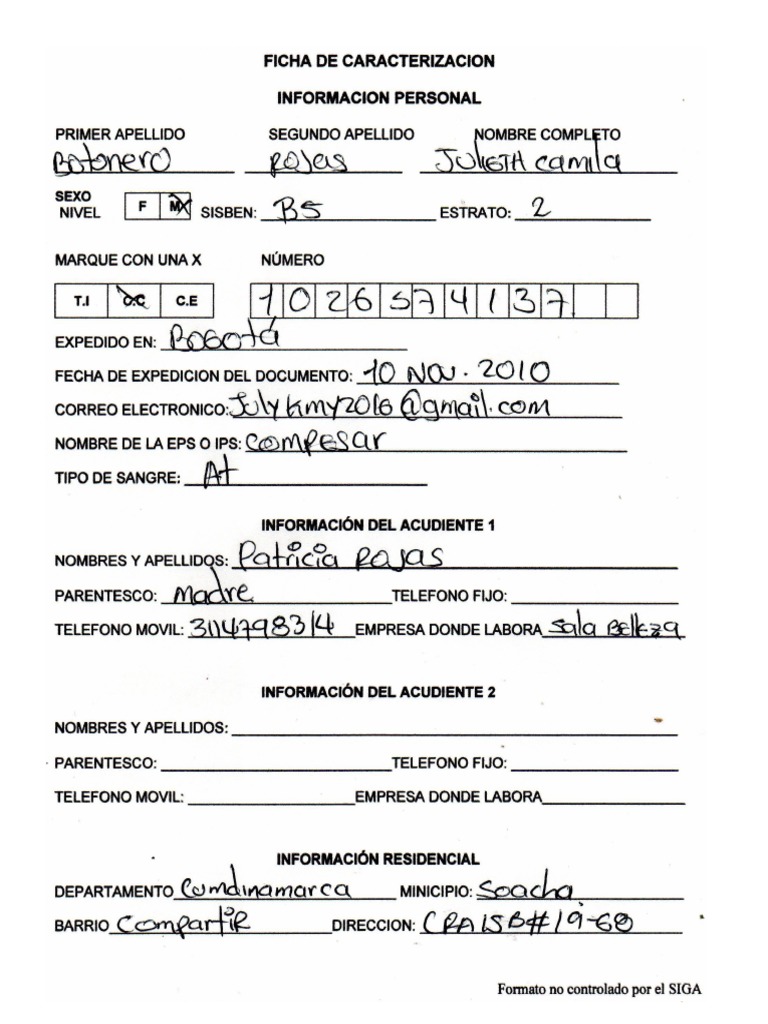 FICHA DE CARACTERIZACION
INFORMACION PERSONAL
PRIMER APELLIDO SEGUNDO APELLIDO NOMBRE COMPLETO
Botonero Rojas Julieth Camila
SEXO
NIVEL F M SISBEN: B5 ESTRATO: 2
MARQUE CON UNA X NÚMERO
T.I C.C C.E 1026574137
EXPEDIDO EN: Bogotá
FECHA DE EXPEDICION DEL DOCUMENTO: 10 Nov. 2010
CORREO ELECTRONICO: Julykmy2016@gmail.com
NOMBRE DE LA EPS O IPS: Compesar
TIPO DE SANGRE: A+
INFORMACIÓN DEL ACUDIENTE 1
NOMBRES Y APELLIDOS: Patricia Rojas
PARENTESCO: Madre TELEFONO FIJO:
TELEFONO MOVIL: 3114798314 EMPRESA DONDE LABORA Sala Belleza
INFORMACIÓN DEL ACUDIENTE 2
NOMBRES Y APELLIDOS:
PARENTESCO: TELEFONO FIJO:
TELEFONO MOVIL: EMPRESA DONDE LABORA
INFORMACIÓN RESIDENCIAL
DEPARTAMENTO Cumdinamarca MINICIPIO: Soacha.
BARRIO Compartir DIRECCION: CRA 15B# 19-60
Formato no controlado por el SIGA